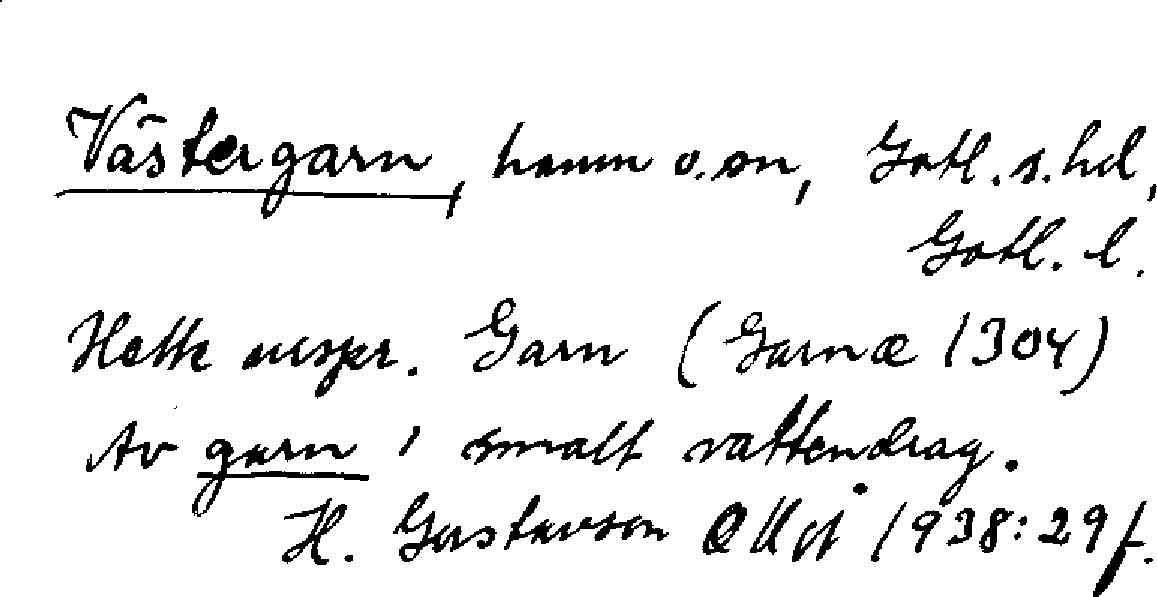 Västergarn, hamn o. sn, Gotl. s. hd,
Gotl. l.
Hette urspr. Garn (Garnæ 1304)
Av garn 'smalt vattendrag.
H. Gustavson 1938: 29 f.